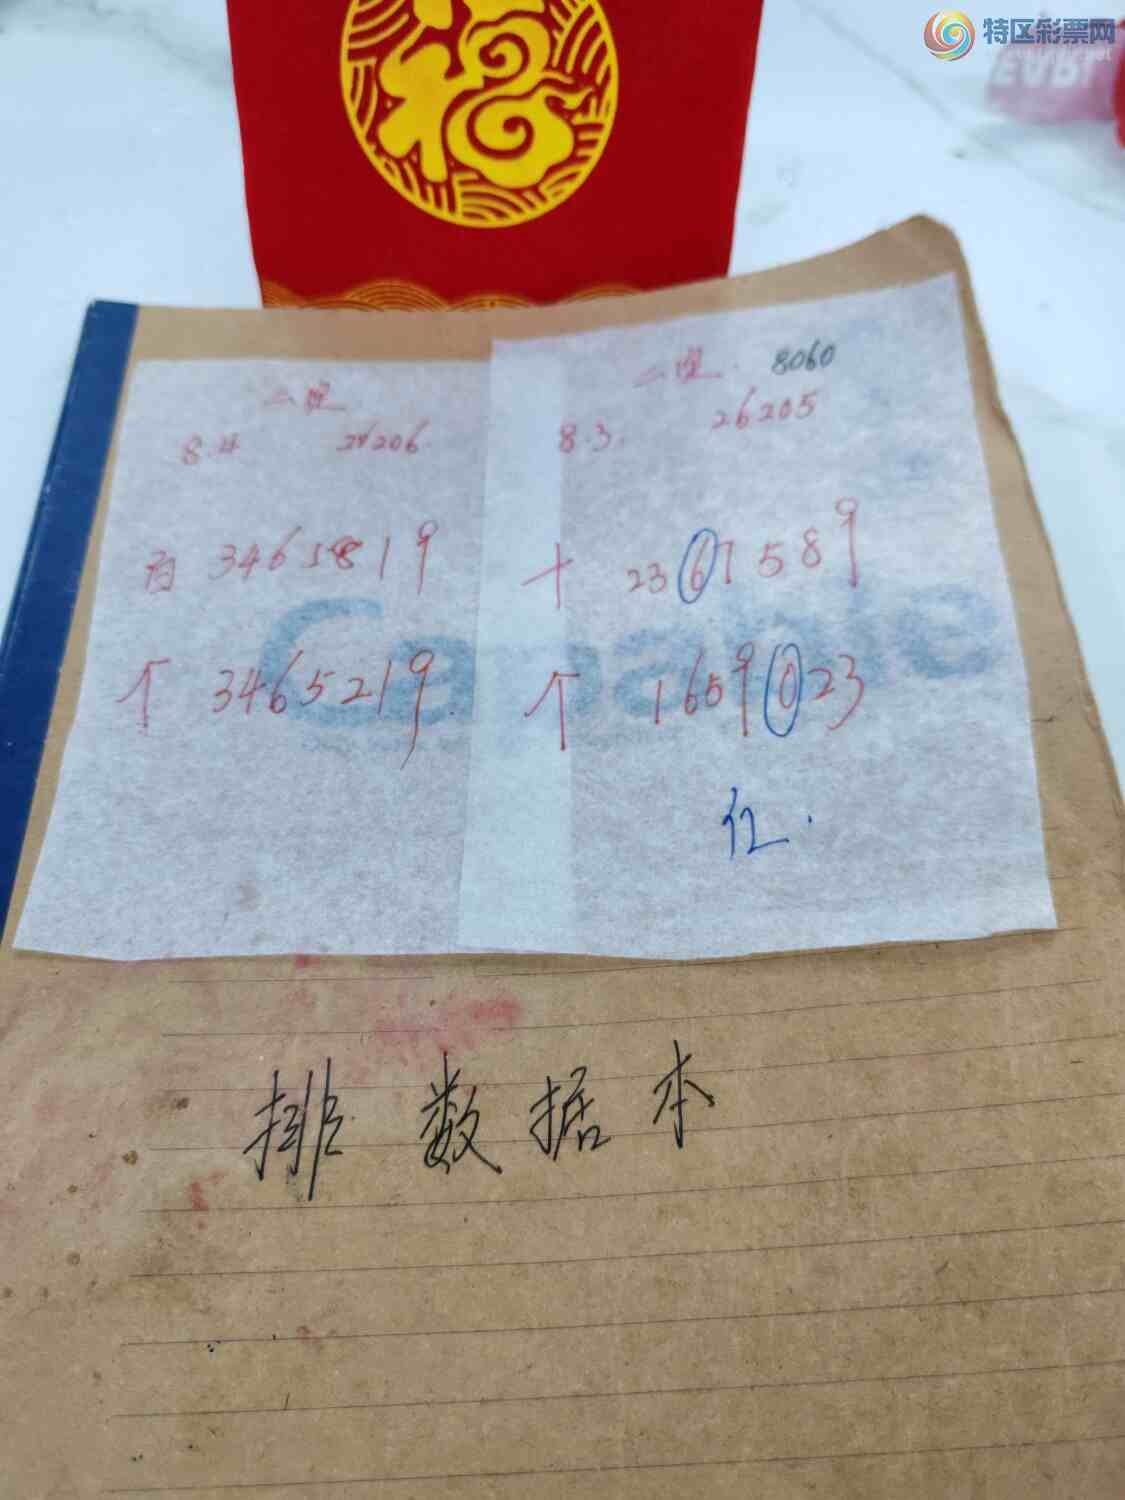 福
特区彩票网
二定
8.4 26206
百 3465819
个 3465219
二定. 8060
8.3. 26205
十 2361589
个 1659023
红.
Capable
排 数 据 本